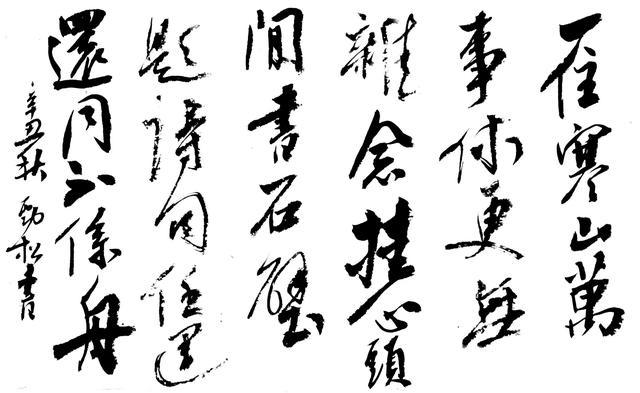 一住寒山萬
事休更無
雜念挂心頭
閒書石壁
題詩句任運
還同不係舟
辛丑秋勁松書